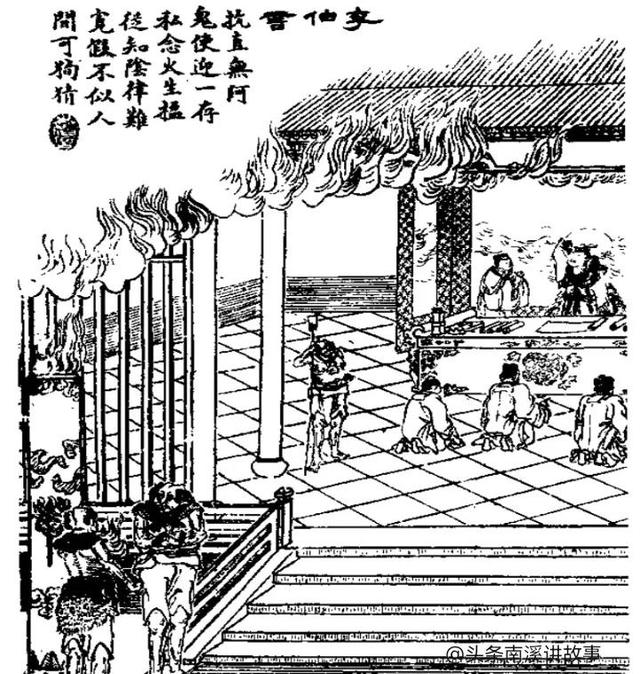 李伯言
抗直無阿
鬼使迎一存
私念火生楹
從知陰律難
寬假不似人
間可狥情
@头条南溪讲故事